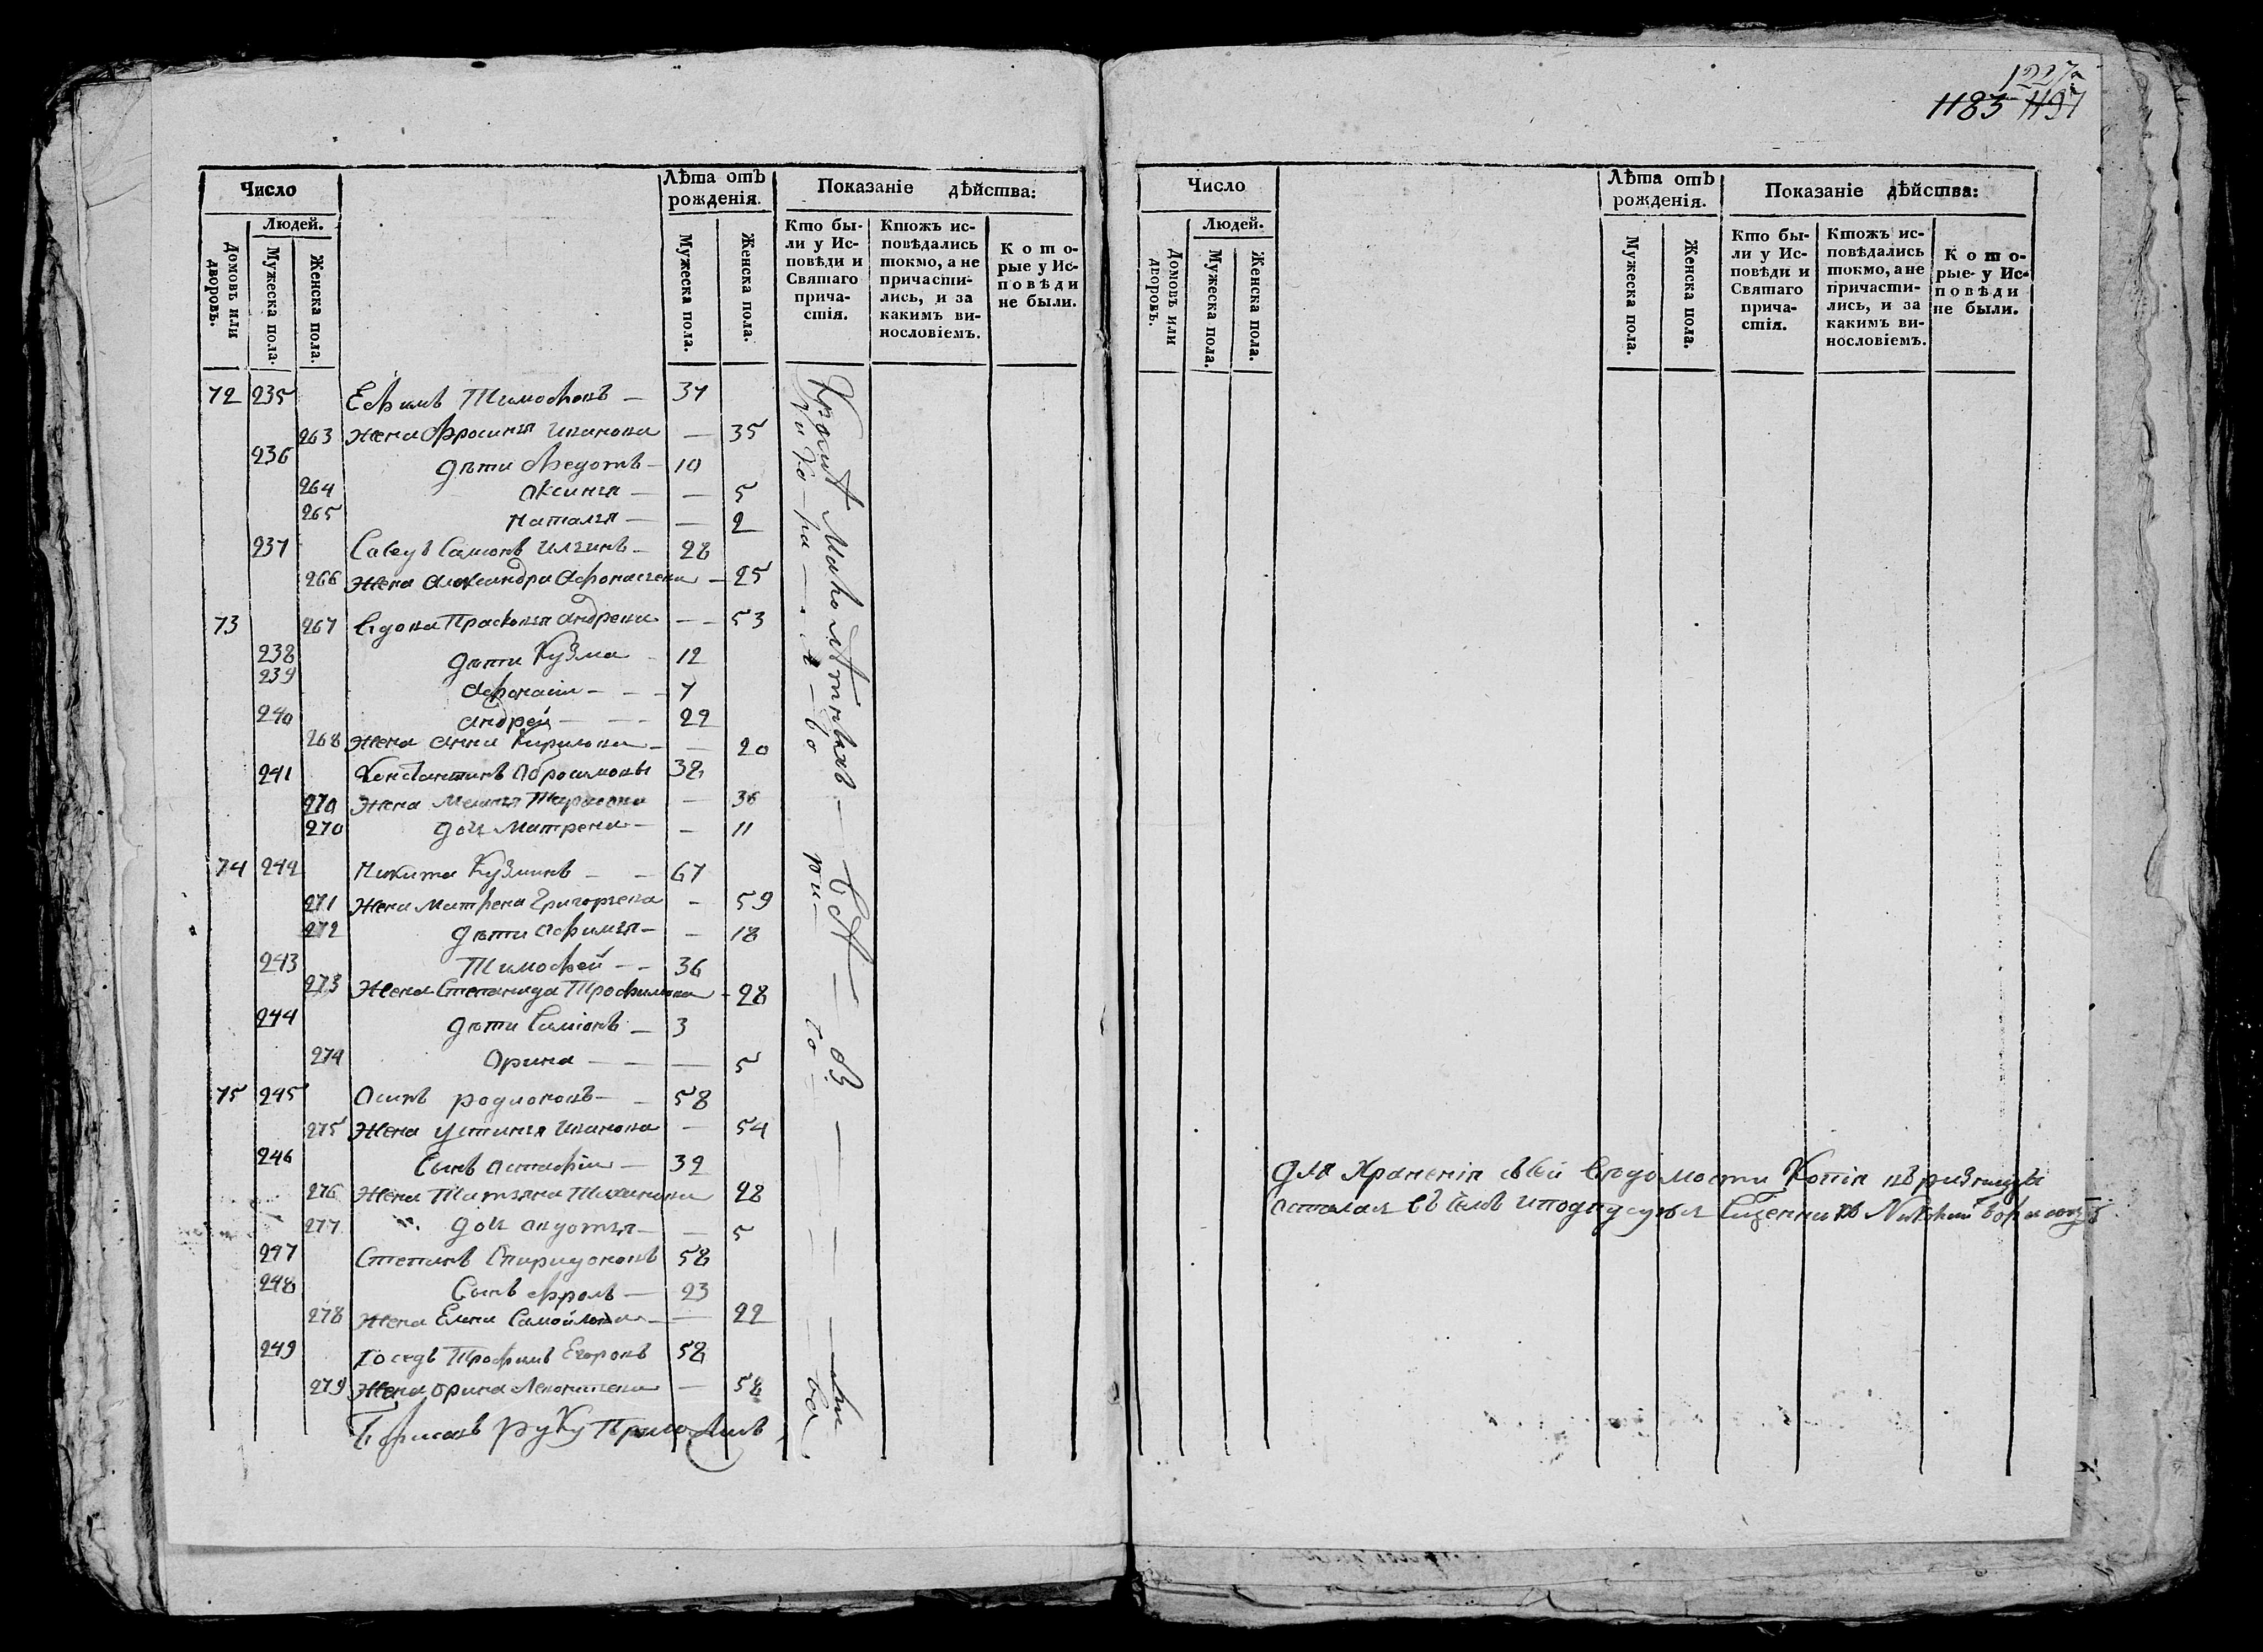 1227а
1183 1197
Число
Людей.
Домовъ или дворовъ.
Мужеска пола.
Женска пола.
Лѣта отъ рожденія.
Мужеска пола.
Женска пола.
Показаніе дѣйства:
Кто были у Исповѣди и Святаго причастія.
Ктожъ исповѣдались токмо, а не причастились, и за какимъ винословіемъ.
Которые у Исповѣди не были.
72 235 Ефимъ Тимофѣевъ — 37
263 Жена Офросинья Иванова — 35
236 дѣти Ѳедотъ — 10
264 Аксинья — — 5
265 Наталья — — 2
237 Самсонъ Ильинъ — 28
266 Жена Александра Афонасьева — 25
73 267 Вдова Прасковья Андреева — — 53
238 дѣти Кузма 12
239 Афонасій — — — 7
240 Андрей — — — 22
268 Жена Анна Кирилова — — 20
241 Константинъ Абросимовъ 38
270 Жена Тарасова — 36
270 дочь Матрена — — 11
74 242 Никита Кузминъ — — 67
271 Жена Матрена Григорьева — 59
272 дѣти Афимья — — 18
243 Тимофей — — 36
273 Жена Степанида Трофимова — 28
244 дѣти Симіонъ — 3
274 Орина — — — 5
75 245 Осипъ Родионовъ — — 58
275 Жена Устинья Иванова — 54
246 Сынъ Астафій — 32
276 Жена Татьяна 28
277 дочь Авдотья — — 5
247 Степанъ Спиридоновъ 58
248 Сынъ Фролъ — 23
278 Жена Елена Самойлова — — 22
249 Сосѣдъ Трофимъ Егоровъ 58
279 Жена Орина — 58
Борисовъ руку приложилъ
Кромѣ малолѣтныхъ — всѣ —
Число
Людей.
Домовъ или дворовъ.
Мужеска пола.
Женска пола.
Лѣта отъ рожденія.
Мужеска пола.
Женска пола.
Показаніе дѣйства:
Кто были у Исповѣди и Святаго причастія.
Ктожъ исповѣдались токмо, а не причастились, и за какимъ винословіемъ.
Которые у Исповѣди не были.
Для храненія сѣей вѣдомости копія въ ризницѣ
осталая въ селѣ священникъ